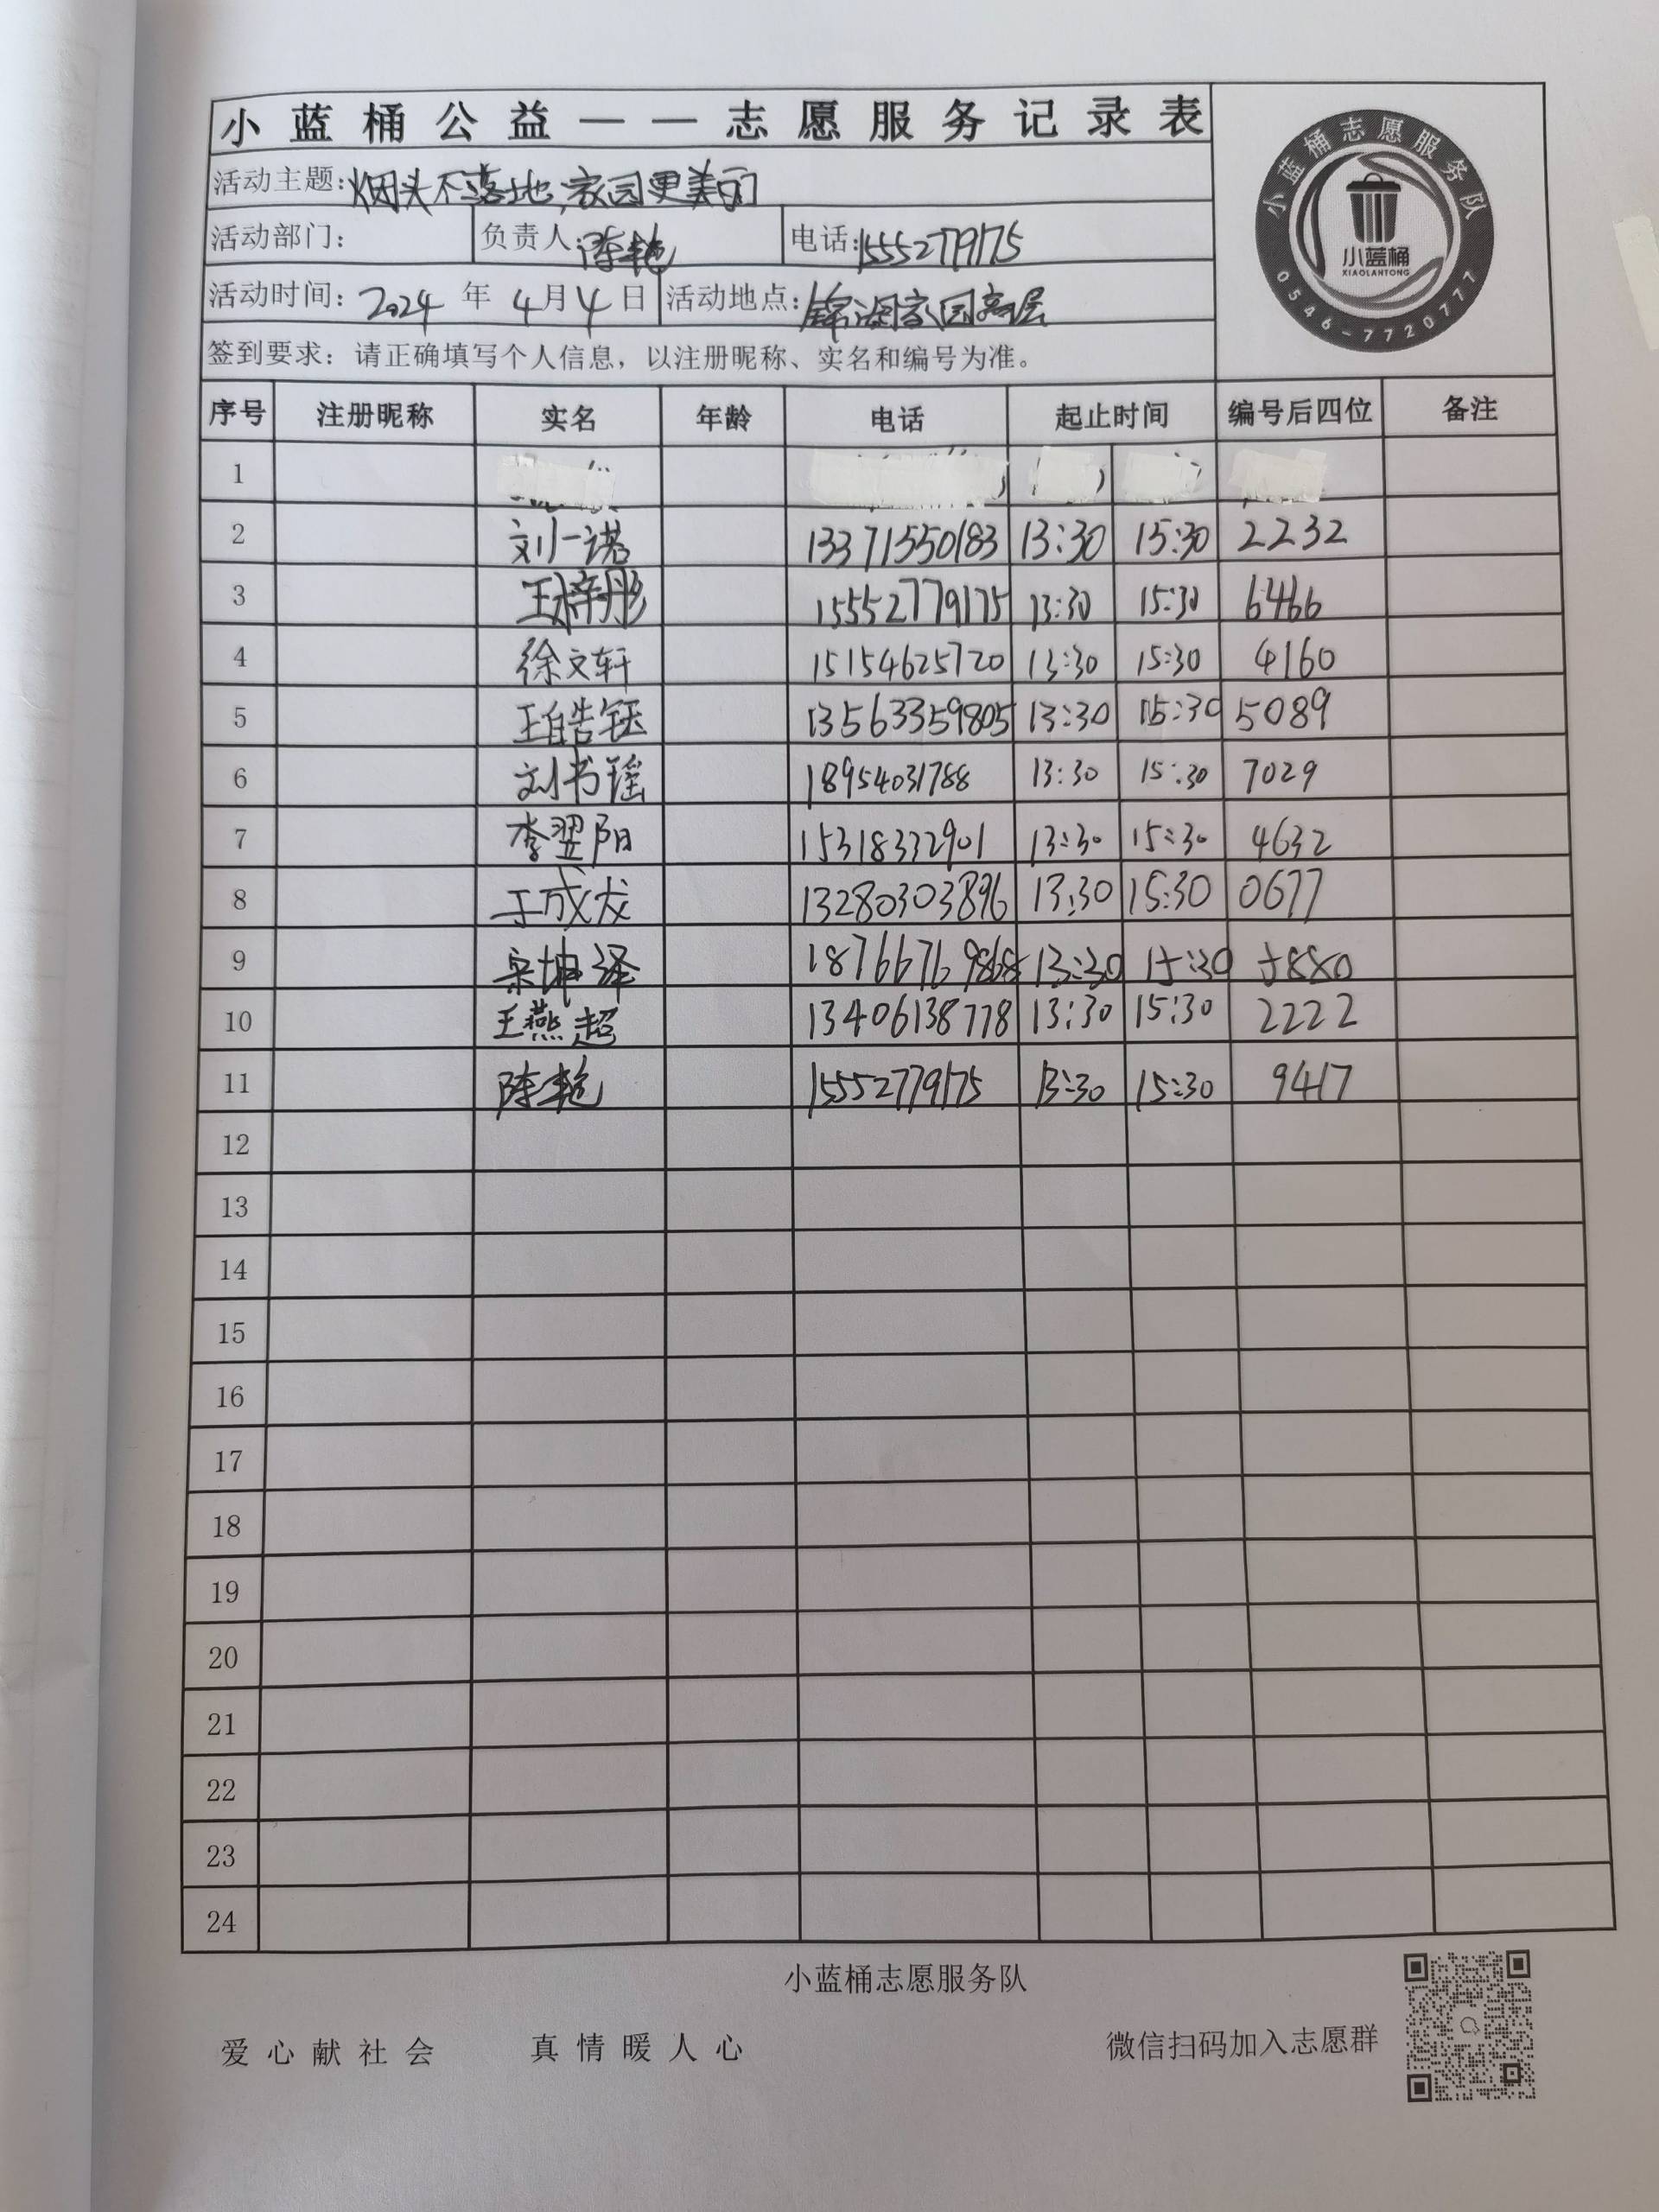 小蓝桶公益——志愿服务记录表
小蓝桶志愿服务队
小蓝桶
XIAOLANTONG
0546-7720777
活动主题:烟头不落地,家园更美丽
活动部门: 负责人:陈艳 电话:15552779175
活动时间: 2024 年 4月4日 活动地点:锦湖家园高层
签到要求: 请正确填写个人信息, 以注册昵称、实名和编号为准。
序号 注册昵称 实名 年龄 电话 起止时间 编号后四位 备注
1
2 刘一诺 13371550183 13:30 15:30 2232
3 王梓彤 15552779175 13:30 15:30 6466
4 徐文轩 15154625720 13:30 15:30 4160
5 王皓钰 13563359805 13:30 15:30 5089
6 刘书瑶 18954031788 13:30 15:30 7029
7 李翌阳 15318332901 13:30 15:30 4632
8 于成龙 13280303896 13:30 15:30 0677
9 坤泽 13:30 15:30 5880
10 王燕超 13406138778 13:30 15:30 2222
11 陈艳 15552779175 13:30 15:30 9417
12
13
14
15
16
17
18
19
20
21
22
23
24
小蓝桶志愿服务队
爱心献社会 真情暖人心 微信扫码加入志愿群